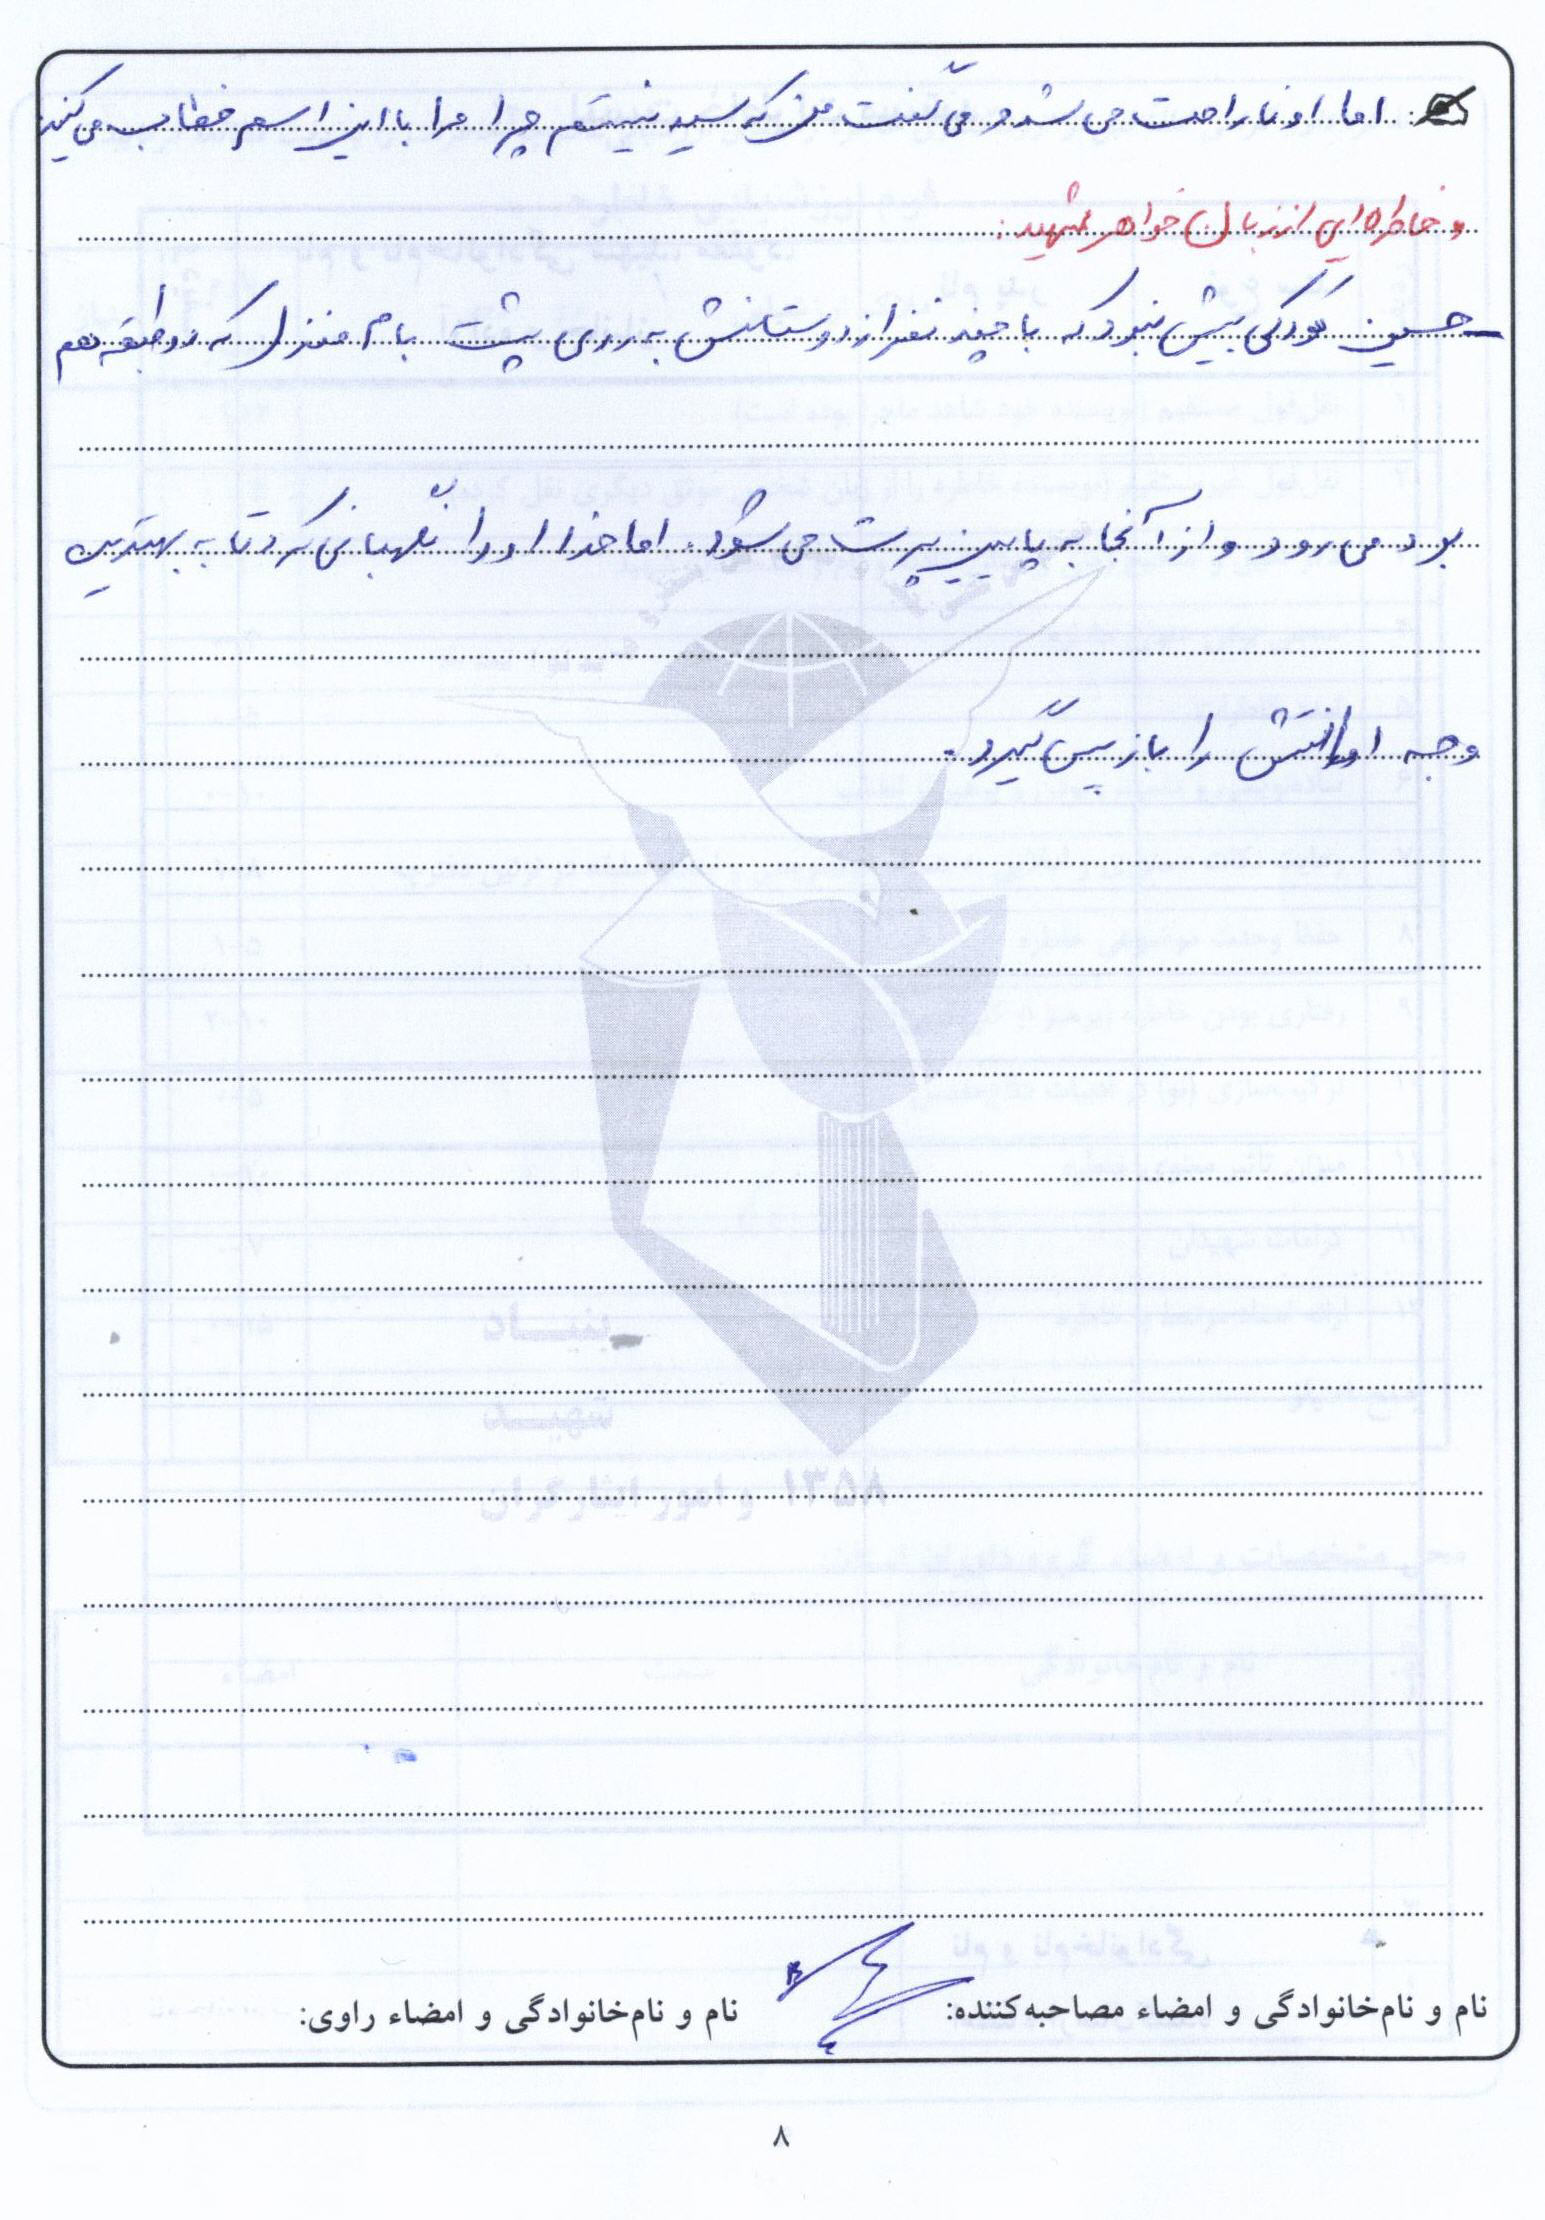 اما او ناراحت می شد و می گفت من که سید نیستم چرا مرا با این اسم خطاب می کنید
خاطره ای از زبان خواهر شهید:
حسین کودکی بیش نبود که با چند نفر از دوستانش به روی پشت بام منزل که دو طبقه هم
بود می رود و از آنجا به پایین پرت می شود. اما خدا او را نگهبانی کرد تا به بهترین
وجه امانتش را باز پس گیرد.
بنیاد
شهید
۱۳۵۸ و امور ایثارگران
نام و نام‌خانوادگی و امضاء مصاحبه‌کننده:
نام و نام‌خانوادگی و امضاء راوی:
۸